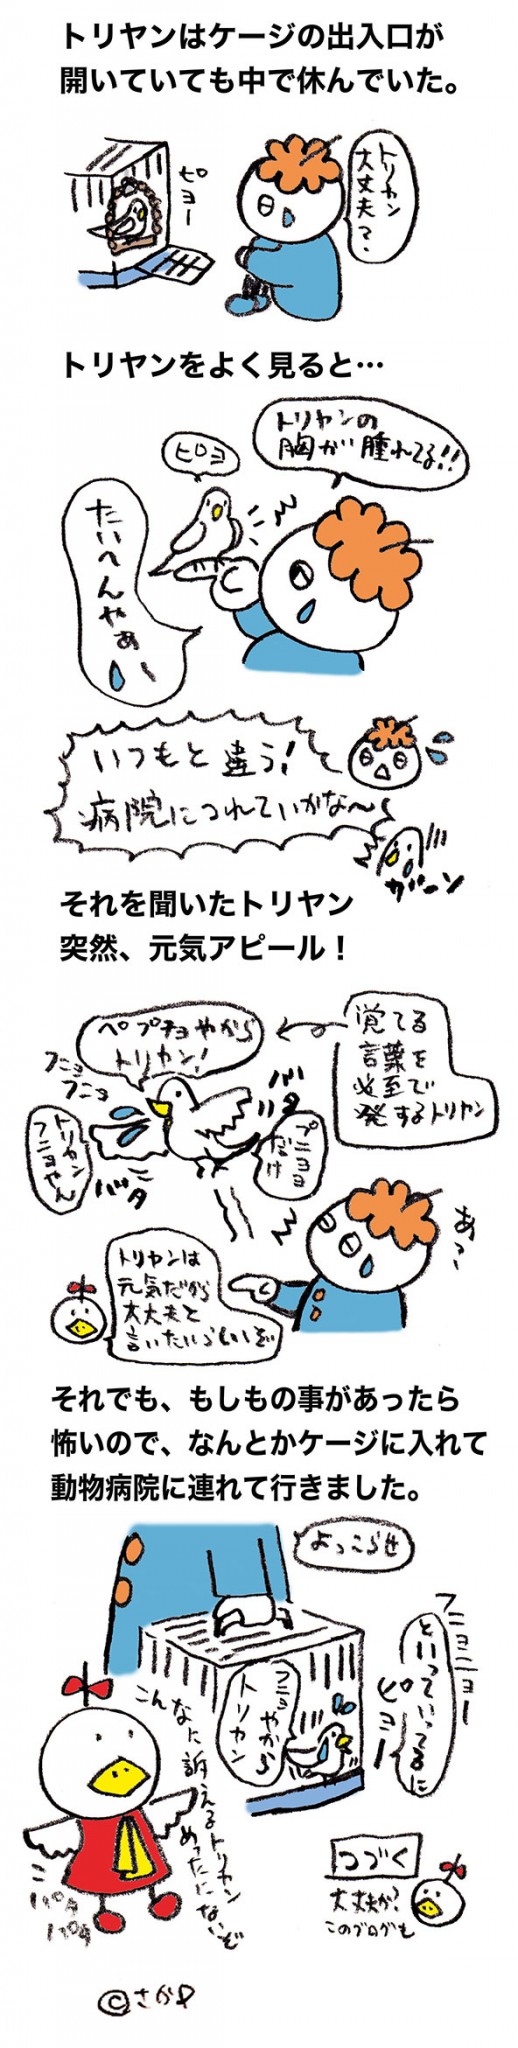 トリヤンはケージの出入口が
開いていても中で休んでいた。
トリヤン
大丈夫？
ピヨー
トリヤンをよく見ると…
トリヤンの
胸が腫れてる!!
ピヨ
たいへんやぁ〜
いつもと違う！
病院につれていかな〜
ガーン
それを聞いたトリヤン
突然、元気アピール！
覚てる
言葉を
必至で
発するトリヤン
ペプチョやから
トリヤン！
フニョ
フニョ
バタ
プニョョ
だけ
トリヤン
フニョやん
バタ
あっ、
トリヤンは
元気だから
大丈夫と
言いたいらしいぞ
それでも、もしもの事があったら
怖いので、なんとかケージに入れて
動物病院に連れて行きました。
よっこらせ
フニョニョー
といっているに
ピヨー
フニョやから
トリヤン
こんなに訴えるトリヤン
めったにないぞ
パタ
パタ
つづく
大丈夫か？
このブログも
©さかい